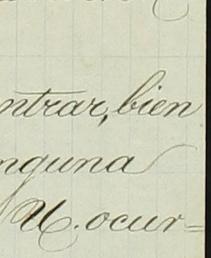 ntrar, bien
nguna
U. ocur=